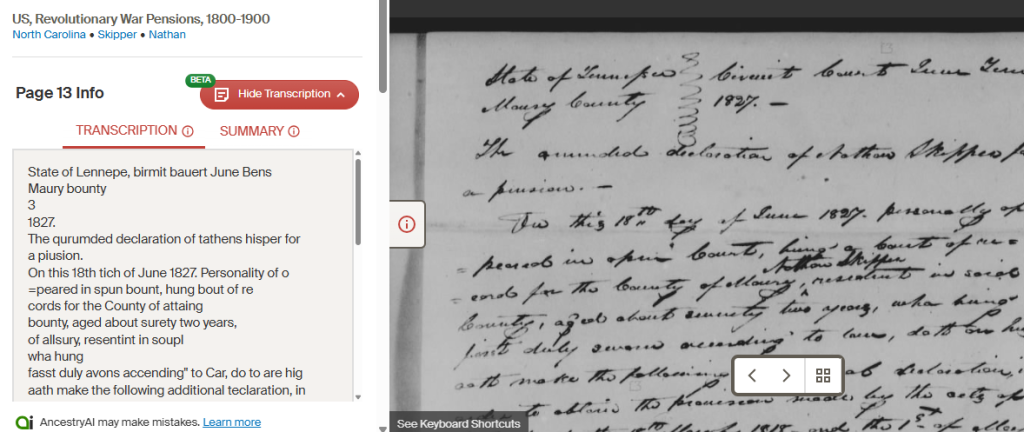 US, Revolutionary War Pensions, 1800-1900
North Carolina • Skipper • Nathan
Page 13 Info
BETA
Hide Transcription
TRANSCRIPTION
SUMMARY
State of Lennepe, birmit bauert June Bens
Maury bounty
3
1827.
The qurumded declaration of tathens hisper for
a piusion.
On this 18th tich of June 1827. Personality of o
=peared in spun bount, hung bout of re
cords for the County of attaing
bounty, aged about surety two years,
of allsury, resentint in soupl
wha hung
fasst duly avons accending" to Car, do to are hig
aath make the following additional teclaration, in
AncestryAI may make mistakes. Learn more
State of Tennessee Circuit Court June Term
Maury County 1827. —
The amended declaration of Nathan Skipper
a pension. —
On this 18th day of June 1827. personally ap
=peared in open Court, being a Court of re=
Nathan Skipper
=cords for the County of Maury, resident in said
County, aged about seventy two years, who being
first duly sworn according to law, doth on
oath make the following declaration,
to obtain the provision made by the acts of
1818 and the 1st of
See Keyboard Shortcuts